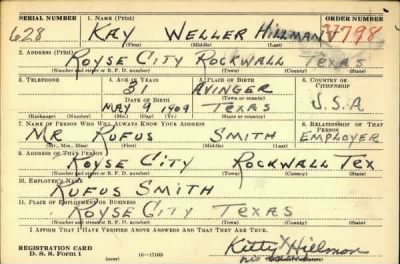 SERIAL NUMBER 1. NAME (Print) ORDER NUMBER
628 KAY WELLER HILLMAN V798
(First) (Middle) (Last)
2. ADDRESS (Print)
ROYSE CITY ROCKWALL TEXAS
(Number and street or R. F. D. number) (Town) (County) (State)
3. TELEPHONE 4. AGE IN YEARS 5. PLACE OF BIRTH 6. COUNTRY OF CITIZENSHIP
31 AVINGER
DATE OF BIRTH (Town or county)
MAY 9 1909 TEXAS U.S.A
(Exchange) (Number) (Mo.) (Day) (Yr.) (State or country)
7. NAME OF PERSON WHO WILL ALWAYS KNOW YOUR ADDRESS 8. RELATIONSHIP OF THAT PERSON
MR. RUFUS SMITH EMPLOYER
(Mr., Mrs., Miss) (First) (Middle) (Last)
9. ADDRESS OF THAT PERSON
ROYSE CITY ROCKWALL TEX
(Number and street or R. F. D. number) (Town) (County) (State)
10. EMPLOYER'S NAME
RUFUS SMITH
11. PLACE OF EMPLOYMENT OR BUSINESS
ROYSE CITY TEXAS
(Number and street or R. F. D. number) (Town) (County) (State)
I AFFIRM THAT I HAVE VERIFIED ABOVE ANSWERS AND THAT THEY ARE TRUE.
REGISTRATION CARD Kitty X Hillmon
D. S. S. Form 1 (over) his